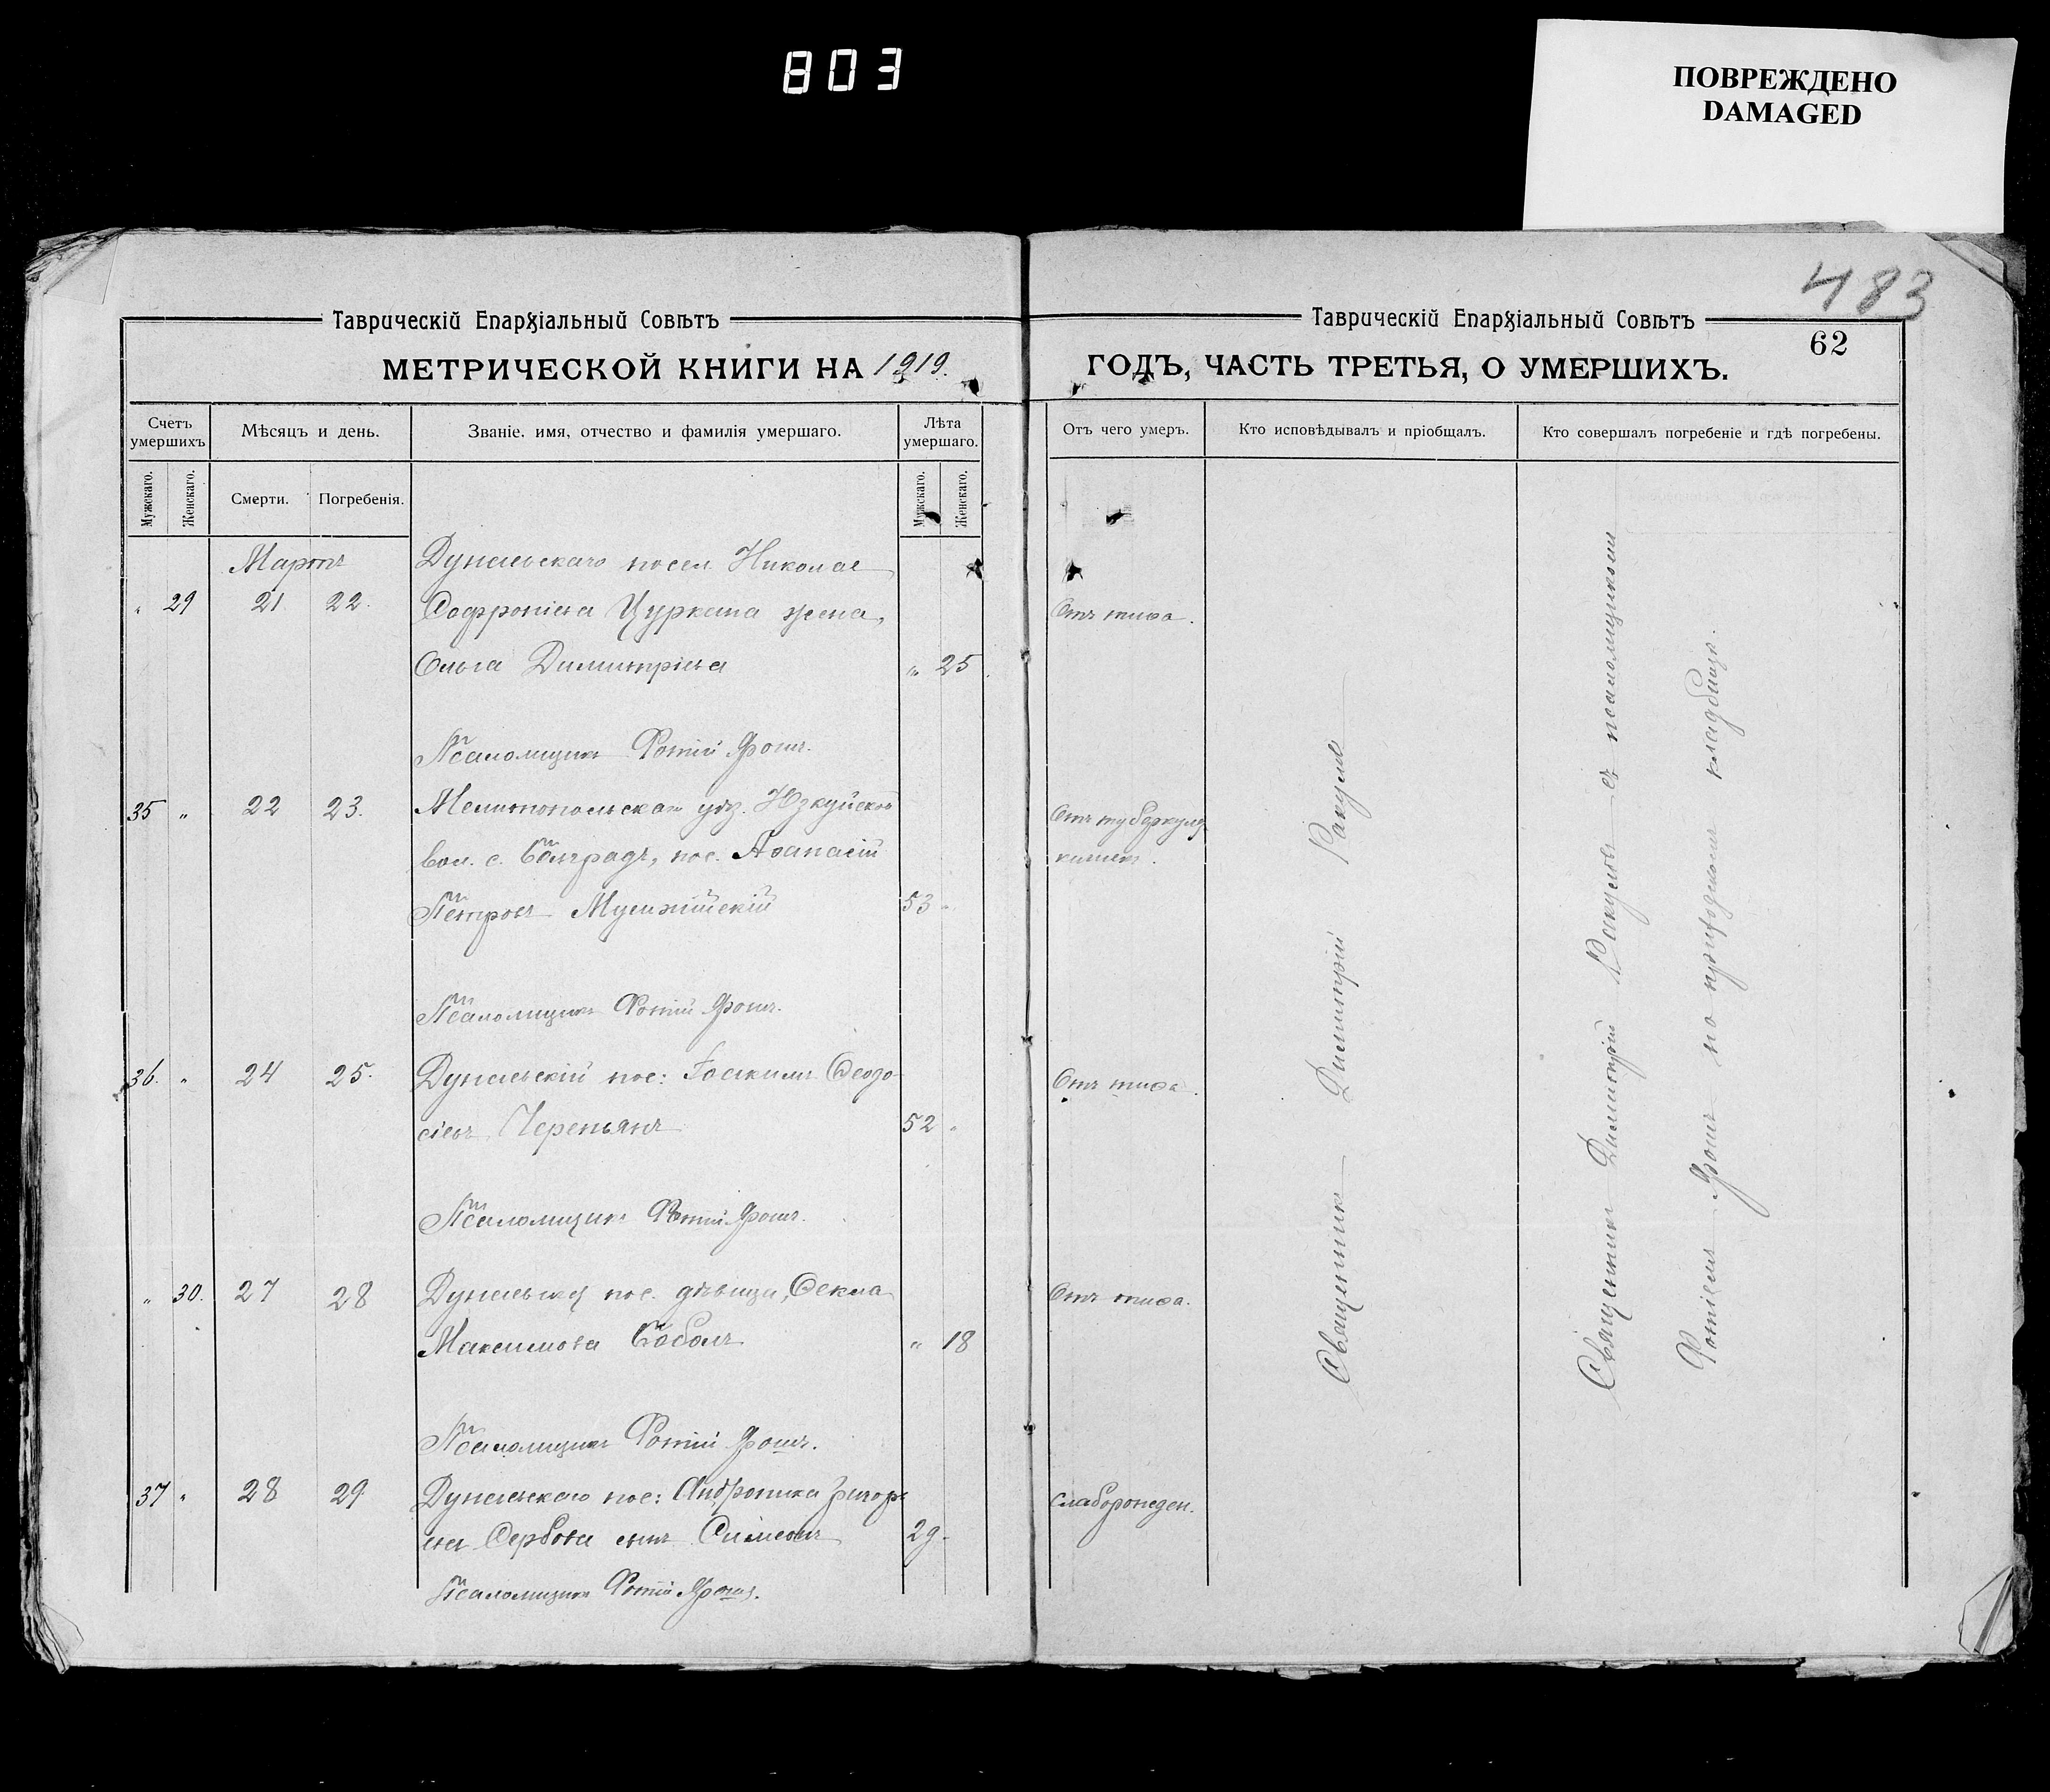 803
ПОВРЕЖДЕНО
DAMAGED
483
Таврическій Епархіальный Совѣтъ
Таврическій Епархіальный Совѣтъ
62
МЕТРИЧЕСКОЙ КНИГИ НА 1919.
ГОДЪ, ЧАСТЬ ТРЕТЬЯ, О УМЕРШИХЪ.
Счетъ умершихъ
Мѣсяцъ и день.
Званіе, имя, отчество и фамилія умершаго.
Лѣта умершаго.
Отъ чего умеръ.
Кто исповѣдывалъ и пріобщалъ.
Кто совершалъ погребеніе и гдѣ погребены.
Мужскаго.
Женскаго.
Смерти.
Погребенія.
Мужскаго.
Женскаго.
Мартъ
Дунаевскаго посел. Николая
„ 29 21 22. Софроніева Цуркана жена,
Отъ тифа.
Ольга Димитріева „ 25
Псаломщикъ Фотій
35 „ 22 23. Мелитопольскаго уѣз. Юзкуйской
Отъ туберкулеза
вол. с. Болградъ, пос. Аѳанасій
кишекъ.
Петровъ 53 „
Псаломщикъ Фотій
36. „ 24 25. Дунаевскій пос: Іоакимъ Ѳеодо-
Отъ тифа.
сіевъ Черепьянъ 52 „
Псаломщикъ Фотій
„ 30. 27 28 пос. дѣвица, Ѳекла
Отъ тифа.
Максимова Соболь „ 18
Псаломщикъ Фотій
37 „ 28 29 Дунаевскаго пос: Андроника Григорь-
слаборожден.
ева Сербова сынъ Симеонъ 29.
Псаломщикъ Фотій
Священникъ Димитрій
Священникъ Димитрій съ псаломщикомъ
Фотіемъ на приходскомъ кладбищѣ.